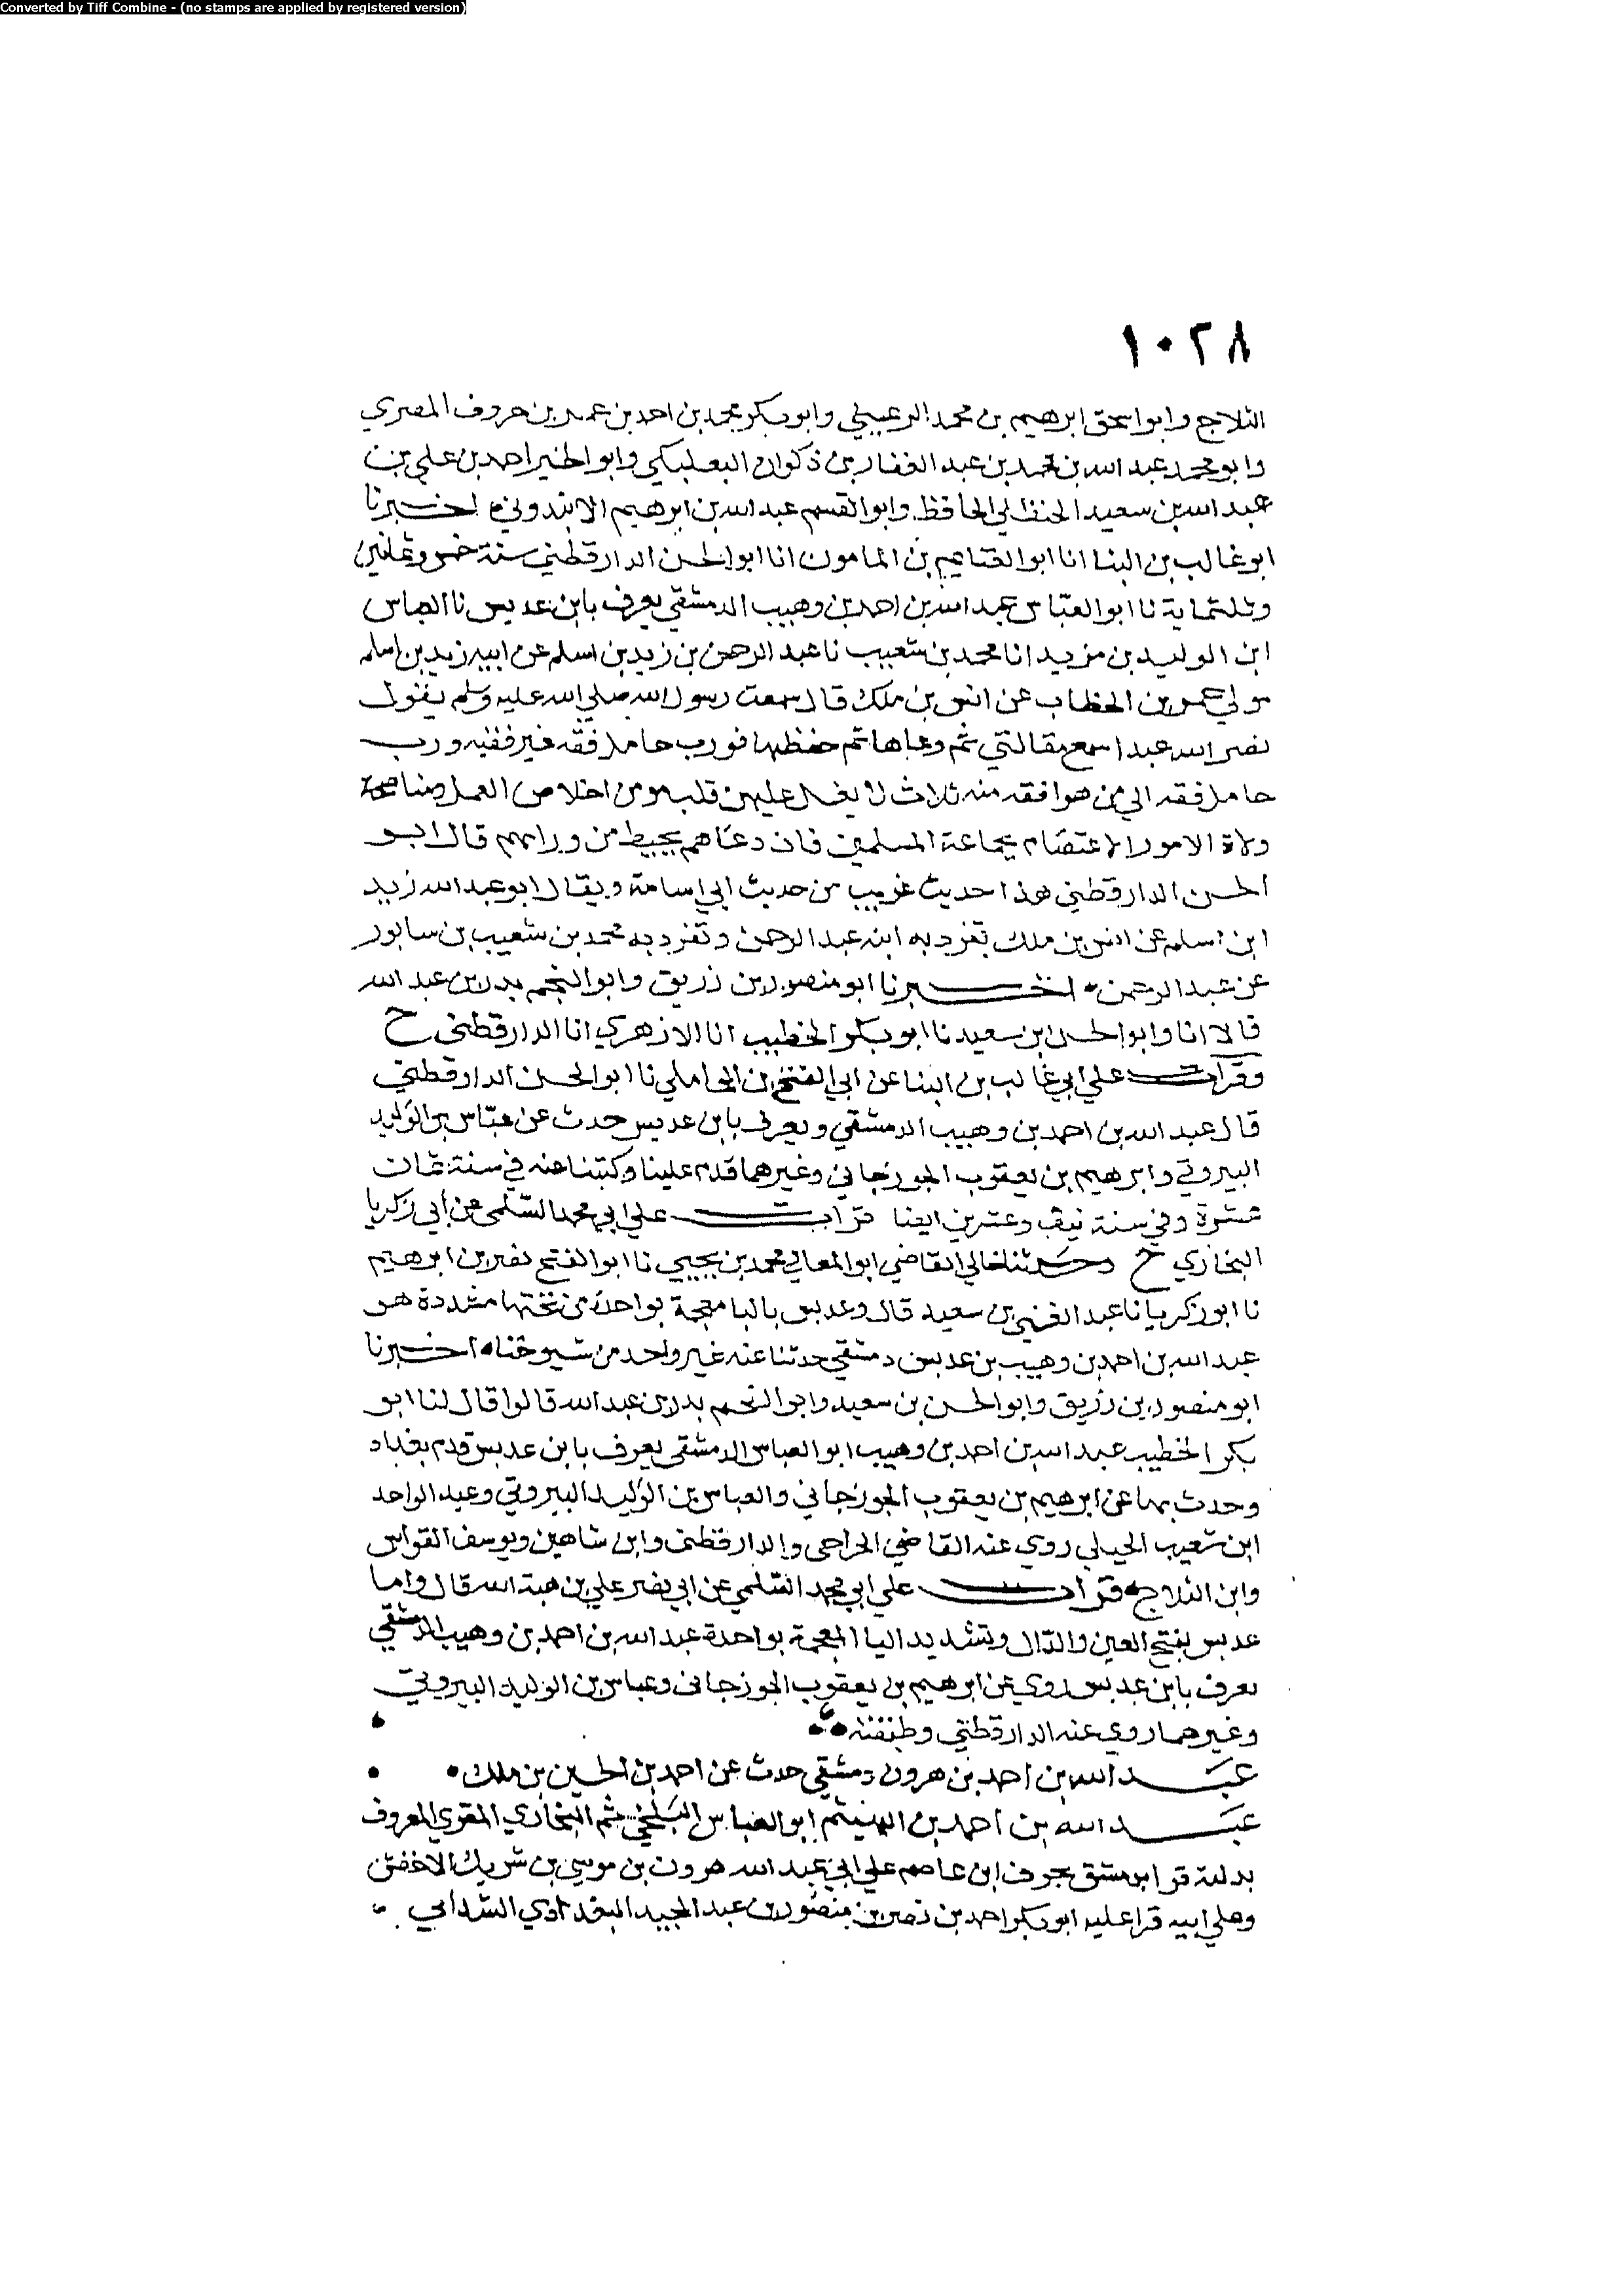 Converted by Tiff Combine - (no stamps are applied by registered version)
١٠٢٨
الثلاج وابو اسحق ابرهيم بن محمد الرعيني وابو بكر محمد بن احمد بن عمر بن خروف المصري
وابو محمد عبد الله بن محمد بن عبد الغفار بن ذكوان البعلبكي وابو الخير احمد بن علي بن
عبد الله بن سعيد الحافظ وابو القسم عبد الله بن ابرهيم الابندوني اخبرنا
ابو غالب بن البنا انا ابو الغنايم بن المامون انا ابو الحسن الدارقطني سنة خمس وثمانين
وثلثماية نا ابو العباس عبد الله بن احمد بن وهيب الدمشقي يعرف بابن عدبس نا العباس
ابن الوليد بن مزيد انا محمد بن شعيب نا عبد الرحمن بن زيد بن اسلم عن ابيه زيد بن اسلم
مولي عمر بن الخطاب عن انس بن ملك قال سمعت رسول الله صلي الله عليه وسلم يقول
نضر الله عبدا سمع مقالتي ثم وعاها ثم حفظها فورب حامل فقه غير فقيه ورب
حامل فقه الي من هو افقه منه ثلاث لا يغل عليهن قلب مومن اخلاص العمل مناصحة
ولاة الامور الاعتصام بجماعة المسلمين فان دعاهم يحيط من ورايهم قال ابو
الحسن الدارقطني هذا حديث غريب من حديث ابي اسامة ويقال ابو عبد الله زيد
ابن اسلم عن انس بن ملك تفرد به ابنه عبد الرحمن وتفرد به محمد بن شعيب بن سابور
عن عبد الرحمن اخبرنا ابو منصور بن زريق وابو النجم بدر بن عبد الله
قالا انا وابو الحسن بن سعيد نا ابو بكر الخطيب انا الازهري انا الدارقطني ح
وقرات علي ابي غالب بن البنا عن ابي الفتح بن المحاملي نا ابو الحسن الدارقطني
قال عبد الله بن احمد بن وهيب الدمشقي ويعرف بابن عدبس حدث عن عباس بن الوليد
البيروتي وابرهيم بن يعقوب الجوزجاني وغيرهما قدم علينا وكتبنا عنه في سنة ثمان
عشرة وفي سنة نيف وعشرين ايضا قرات علي ابي محمد السلمي عن ابي زكريا
البخاري ح وحدثنا خالي القاضي ابو المعالي محمد بن يحيي نا ابو الفتح نصر بن ابرهيم
نا ابو زكريا نا عبد الغني بن سعيد قال وعدبس بالبا معجمة بواحدة من تحتها مشددة هو
عبد الله بن احمد بن وهيب بن عدبس دمشقي حدثنا عنه غير واحد من شيوخنا اخبرنا
ابو منصور بن زريق وابو الحسن بن سعيد وابو النجم بدر بن عبد الله قالوا قال لنا ابو
بكر الخطيب عبد الله بن احمد بن وهيب ابو العباس الدمشقي يعرف بابن عدبس قدم بغداد
وحدث بها عن ابرهيم بن يعقوب الجوزجاني والعباس بن الوليد البيروتي وعبد الواحد
ابن شعيب الجبلي روي عنه القاضي الجراحي والدارقطني وابن شاهين ويوسف القواس
وابن الثلاج قرات علي ابي محمد السلمي عن ابي نصر علي بن هبة الله قال واما
عدبس بفتح العين والدال وتشديد البا المعجمة بواحدة عبد الله بن احمد بن وهيب الدمشقي
يعرف بابن عدبس روي عن ابرهيم بن يعقوب الجوزجاني وعباس بن الوليد البيروتي
وغيرهما روي عنه الدارقطني وطبقته
عبد الله بن احمد بن هرون دمشقي حدث عن احمد بن الحسين بن ملك
عبد الله بن احمد بن الهيثم ابو العباس البلخي ثم البخاري المقري المعروف
بدلبة قرا بدمشق بحرف ابن عامر علي ابي عبد الله هرون بن موسي بن شريك الاخفش
وعلي ابيه قرا عليه ابو بكر احمد بن نصر بن منصور بن عبد المجيد البغدادي الشذابي